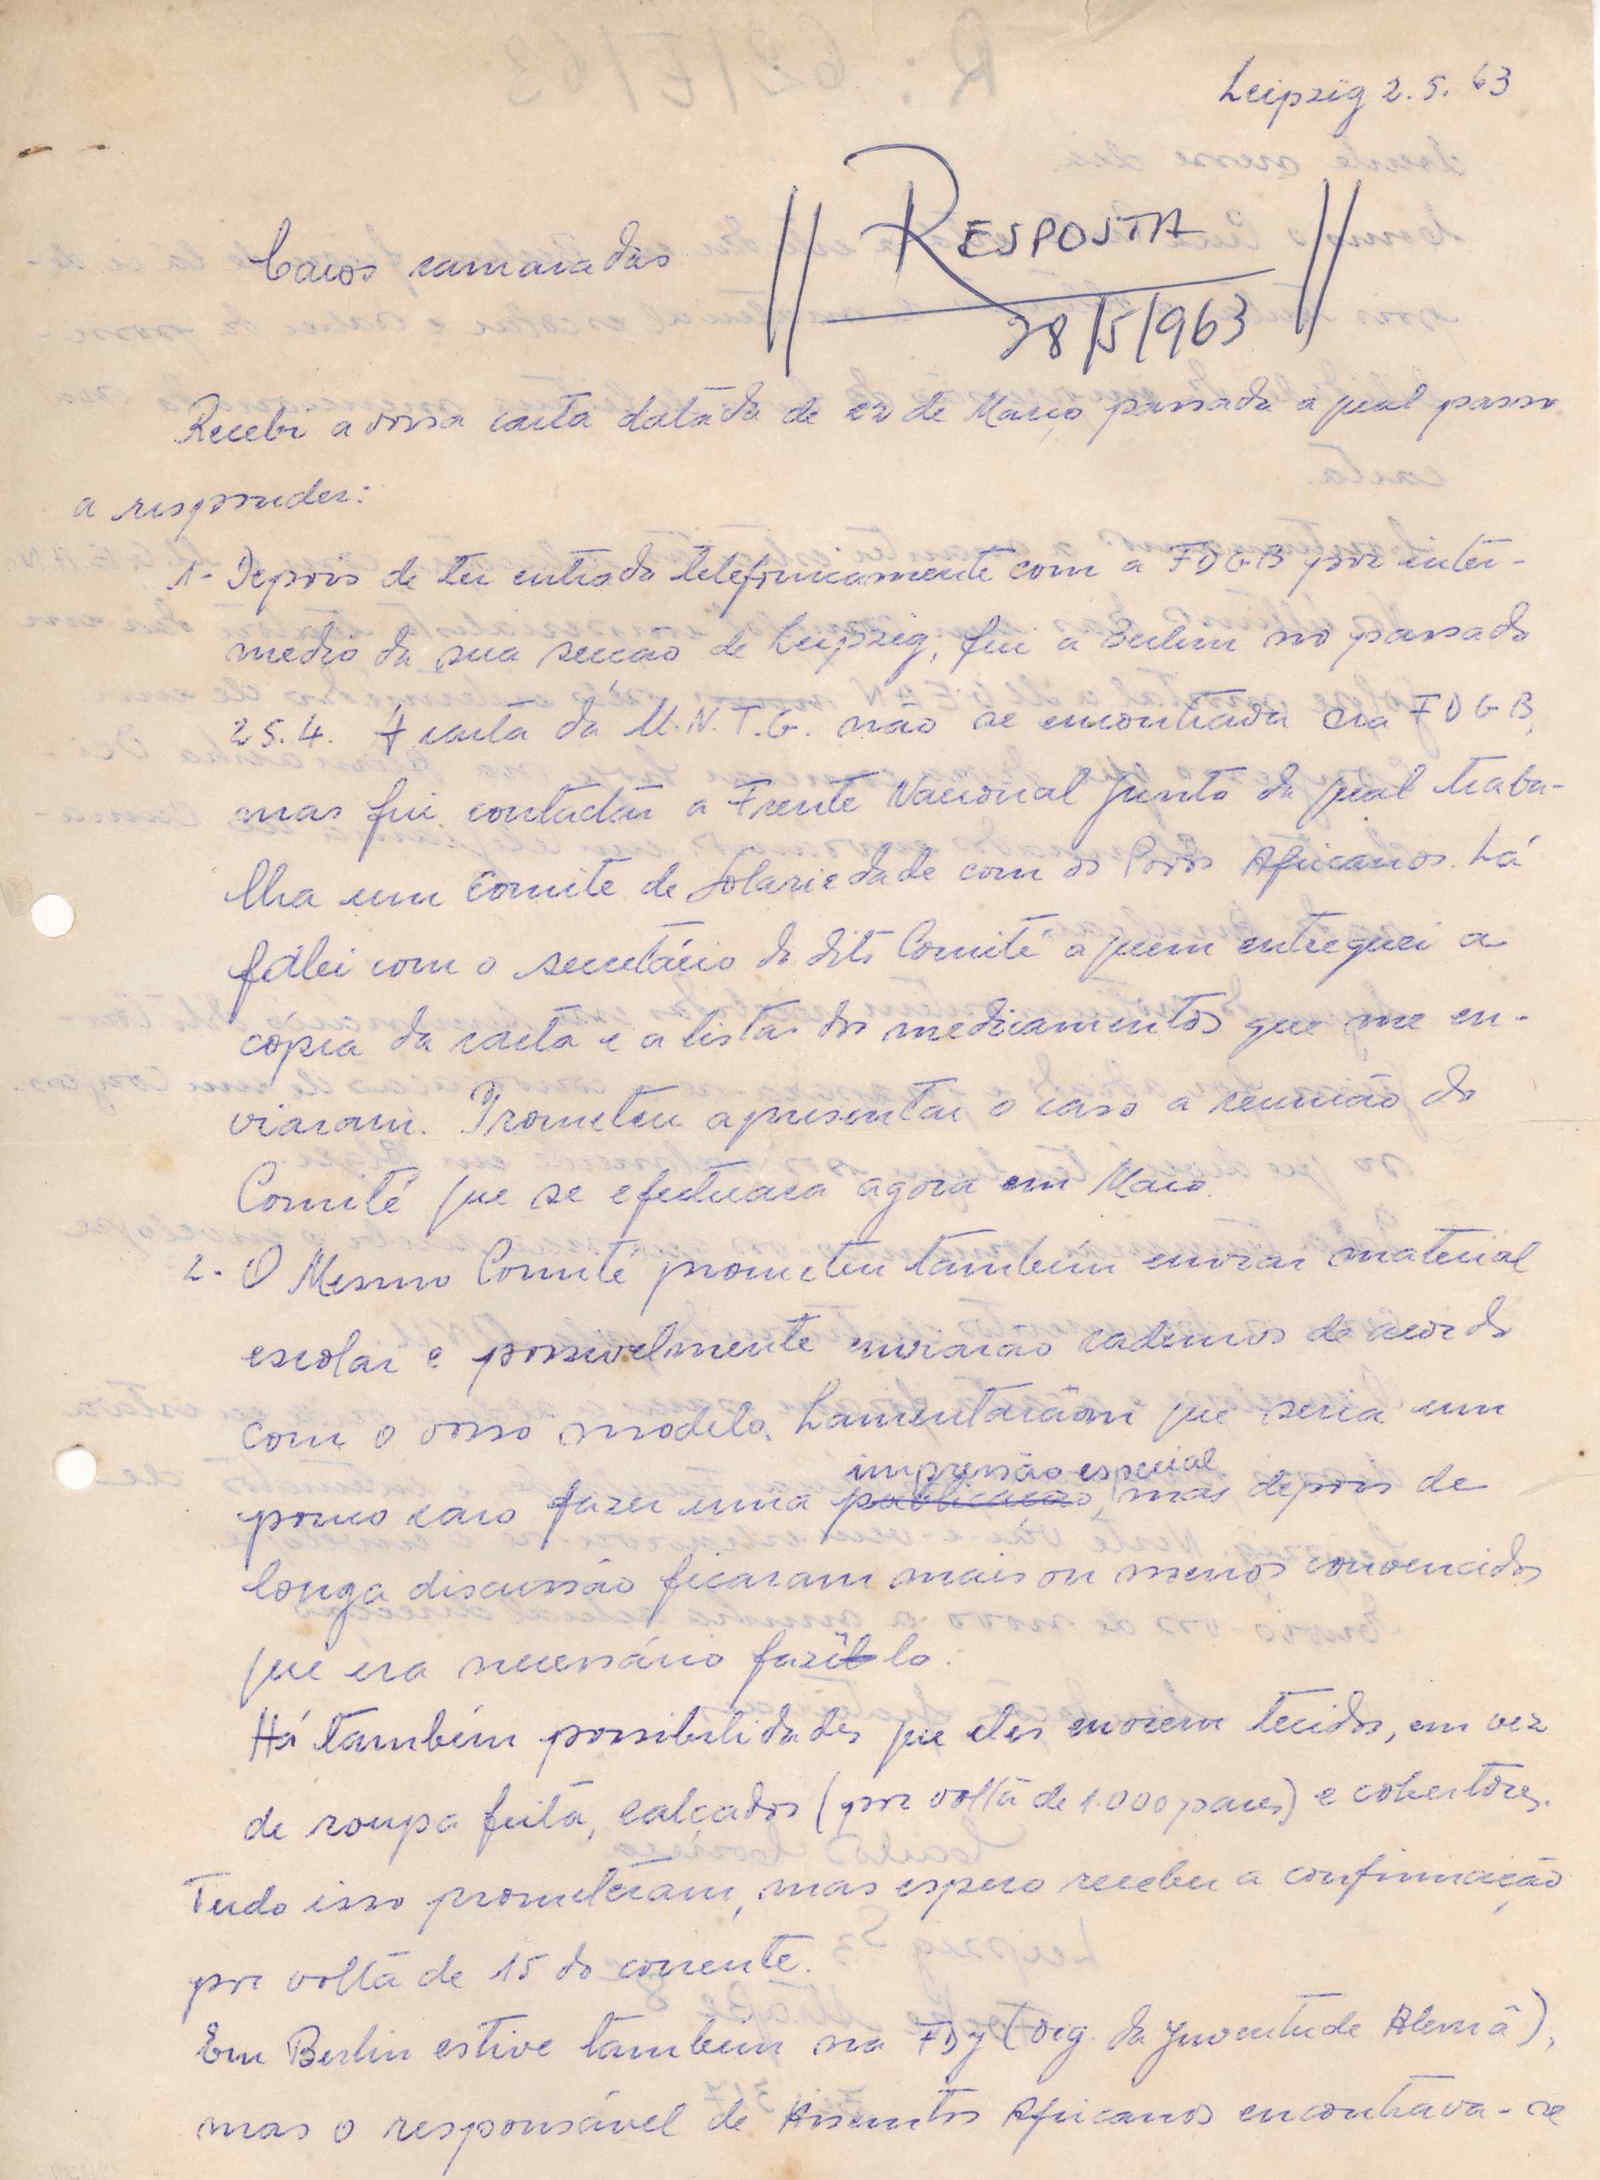 Leipzig 2.5.63
Caros camaradas
RESPOSTA
28/5/963
Recebi a vossa carta datada de de Março passado a qual passo
a responder:
1- Depois de ter entrado telefonicamente com a FDGB por inter-
medio da sua secção de Leipzig, fui a Berlim no passado
25.4. A carta da U.N.T.G. não se encontrada na FDGB,
mas fui contactar a Frente Nacional junto da qual traba-
lha um comite de Solariedade com os Povos Africanos. Lá
falei com o secretário do dito Comité a quem entreguei a
cópia da carta e a lista dos medicamentos que me en-
viaram. Prometeu apresentar o caso a reunião do
Comité que se efectuara agora em Maio.
2- O Mesmo Comité prometeu também enviar material
escolar e possivelmente enviarão cadernos de acordo
com o vosso modelo. que seria um
pouco caro fazer uma publicação impressão especial, mas depois de
longa discussão ficaram mais ou menos convencidos
que era necessário fazê-lo.
Há também possibilidades que eles enviem tecidos, em vez
de roupa feita, calçados (por volta de 1.000 pares) e cobertores.
Tudo isso prometeram, mas espero receber a confirmação
por volta de 15 do corrente.
Em Berlin estive também na FDJ (Org. da Juventude Alemã),
mas o responsável de Assuntos Africanos encontrava-se